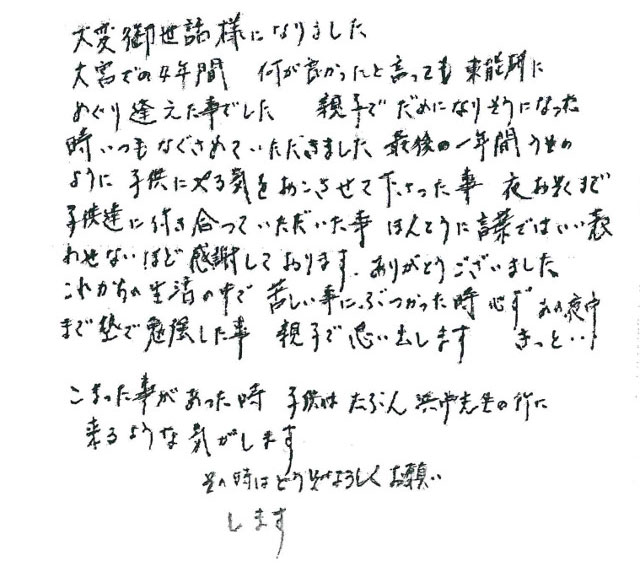 大変御世話様になりました
大宮での4年間 何が良かったと言っても 東能研に
めぐり逢えた事でした 親子で だめになりそうになった
時いつもなぐさめていただきました 最後の一年間 うその
ように 子供にやる気をおこさせて下さった事 夜お遅くまで
子供達に付き合っていただいた事 ほんとうに言葉ではいい表
わせないほど 感謝しております。ありがとうございました
これからの生活の中で 苦しい事に、ぶつかった時 必ず あの夜中
まで塾で勉強した事 親子で思い出します きっと…!
こまった事があった時 子供は たぶん 浜中先生の所に
来るような気がします
その時はどうぞよろしくお願い
します